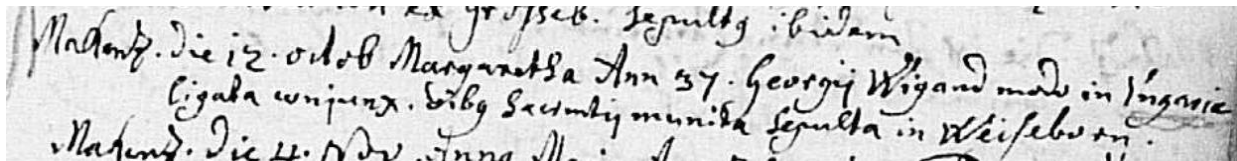 ex Grosseb. Sepultg ibidem
Makenz. die 12. octob Margaretha Ann 37. Georgij Wigand modo in Ungaria
ligata conjunx. oibg Sacrmtij munita Sepulta in Weiseborn.
Makenz. die 4. Nov Anna